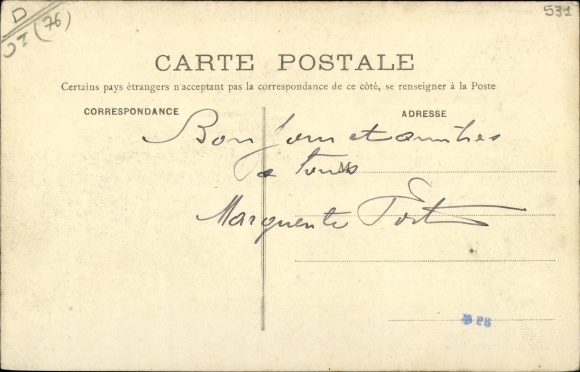 D
(76)
531
CARTE POSTALE
Certains pays étrangers n'acceptant pas la correspondance de ce côté, se renseigner à la Poste
CORRESPONDANCE
ADRESSE
Bonjour et amitiés
a tous
M
Marguerite Fort